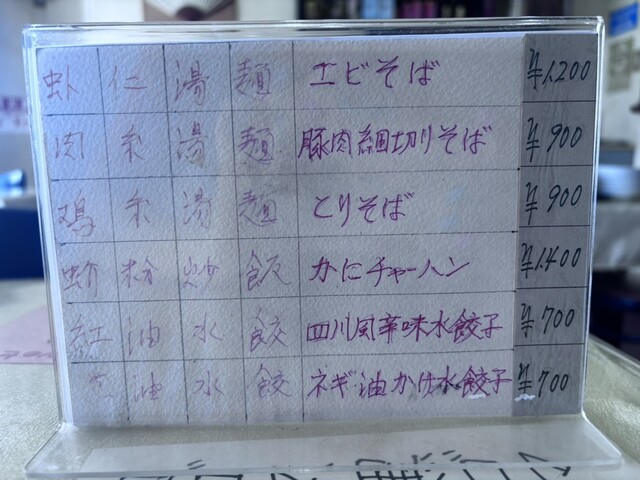 虾仁湯麺 エビそば ¥1,200
肉糸湯麺 豚肉細切りそば ¥900
鸡糸湯麺 とりそば ¥900
蚧粉炒飯 かにチャーハン ¥1,400
紅油水餃 四川風辛味水餃子 ¥700
油水餃 ネギ油かけ水餃子 ¥700